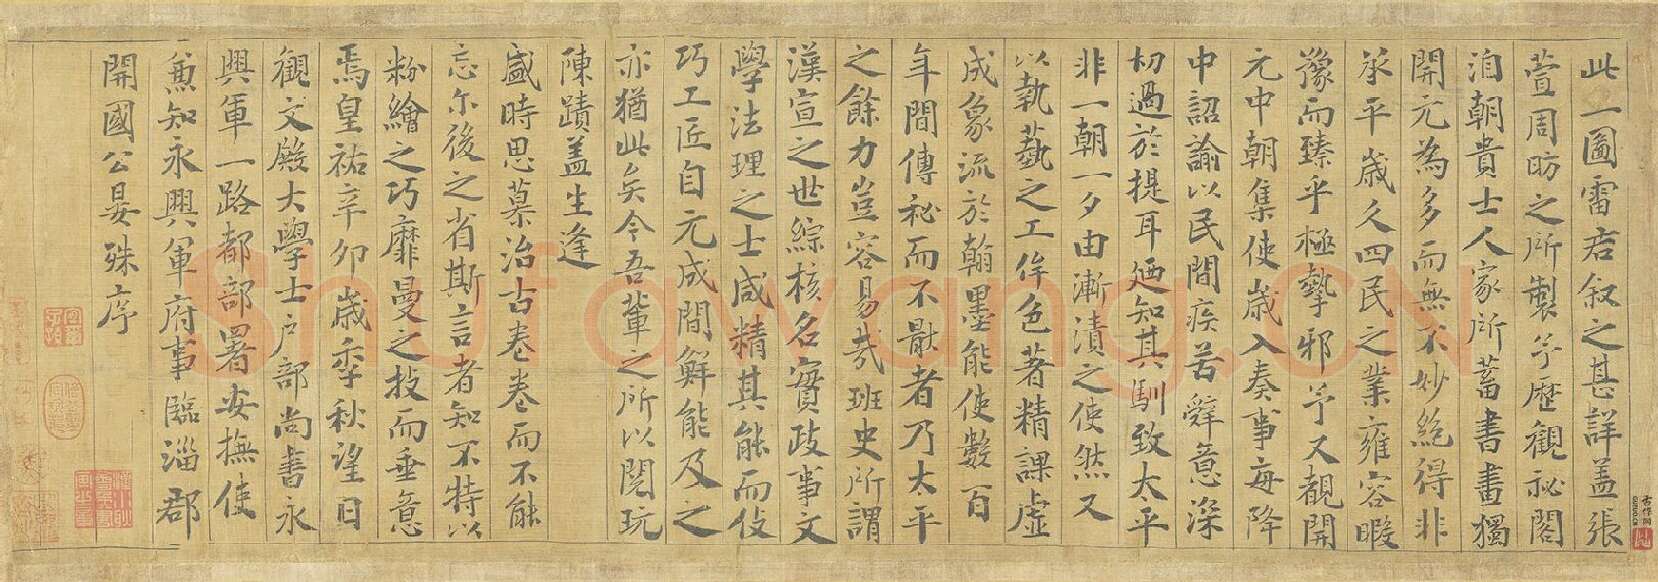 此一圖雷君叙之甚詳盖張
萱周昉之所製予歷觀祕閣
洎朝貴士人家所蓄書畫獨
開元為多而無不妙絕得非
承平歲久四民之業雍容暇
豫而臻乎極摯邪予又觀開
元中朝集使歲入奏事每降
中詔諭以民間疾苦辞意深
切過於提耳廼知其馴致太平
非一朝一夕由漸漬之使然又
以執蓺之工侔色著精課虛
成象流於翰墨能使數百
年間傳祕而不猒者乃太平
之餘力豈容易哉班史所謂
漢宣之世綜核名實政事文
學法理之士咸精其能而伎
巧工匠自元成間鮮能及之
亦猶此矣今吾輩之所以閱玩
陳蹟盖生逢
盛時思慕治古卷卷而不能
忘尔後之省斯言者知不特以
粉繪之巧靡曼之技而垂意
焉皇祐辛卯歲季秋望日
觀文殿大學士户部尚書永
興軍一路都部署安撫使
兼知永興軍府事臨淄郡
開國公晏殊序
Shufawang.CN